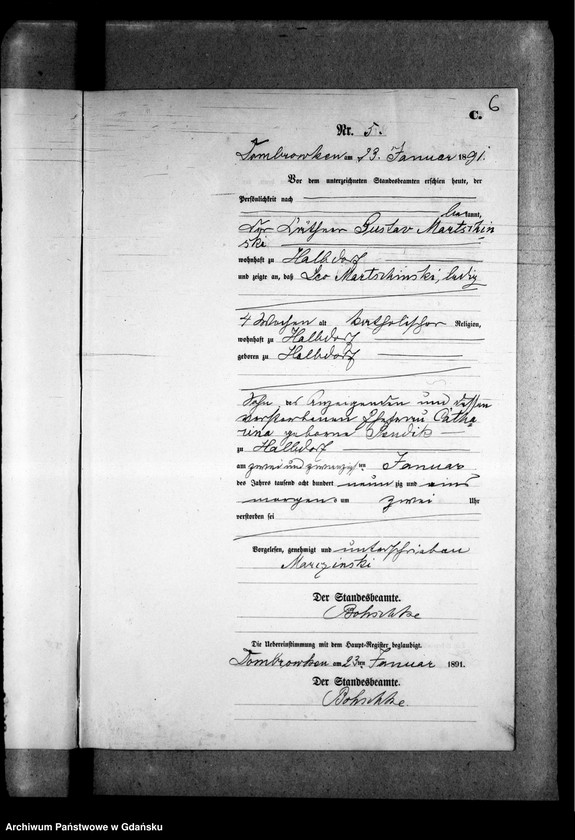 6
C.
Nr. 5.
Dombrowken am 23. Januar 1891.
Vor dem unterzeichneten Standesbeamten erschien heute, der
Persönlichkeit nach
bekannt,
Gustav Martschin
ski
wohnhaft zu Halbdorf
und zeigte an, daß Leo Martschinski, ledig
4 Wochen alt katholischer Religion,
wohnhaft zu Halbdorf
geboren zu Halbdorf
Sohn des Anzeigenden und dessen
verstorbenen Ehefrau Catha
rina geborne
zu Halbdorf
am zwei und zwanzigsten Januar
des Jahres tausend acht hundert neunzig und eins
morgens um zwei Uhr
verstorben sei
Vorgelesen, genehmigt und unterschrieben
Marczinski
Der Standesbeamte.
Bohschke
Die Uebereinstimmung mit dem Haupt-Register beglaubigt.
Dombrowken am 23ten Januar 1891.
Der Standesbeamte.
Bohschke.
Archiwum Państwowe w Gdańsku